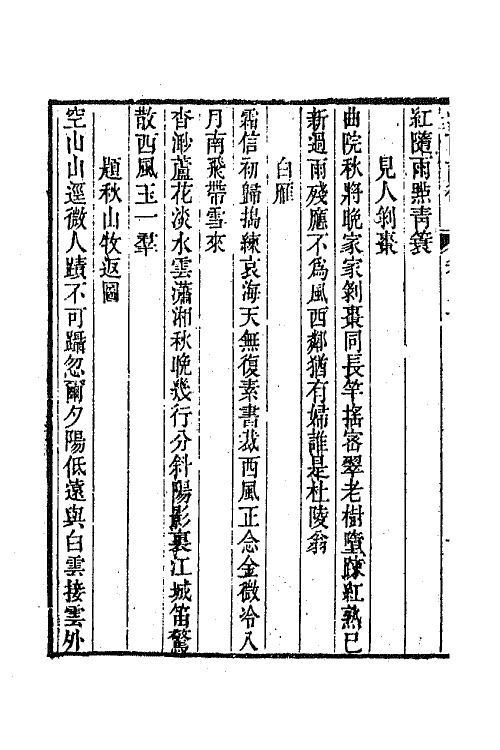 紅隨雨點靑簑
見人剝棗
曲院秋將晚家家剝棗同長竿搖密翠老樹墮踈紅熟已
新過雨殘應不爲風西鄰猶有婦誰是杜陵翁
白雁
霜信初歸搗練哀海天無復素書裁西風正念金微冷入
月南飛帶雪來
杳渺蘆花淡水雲瀟湘秋晚幾行分斜陽影裏江城笛驚
散西風玉一羣
題秋山牧返圖
空山山逕微人蹟不可躡忽爾夕陽低遠與白雲接雲外